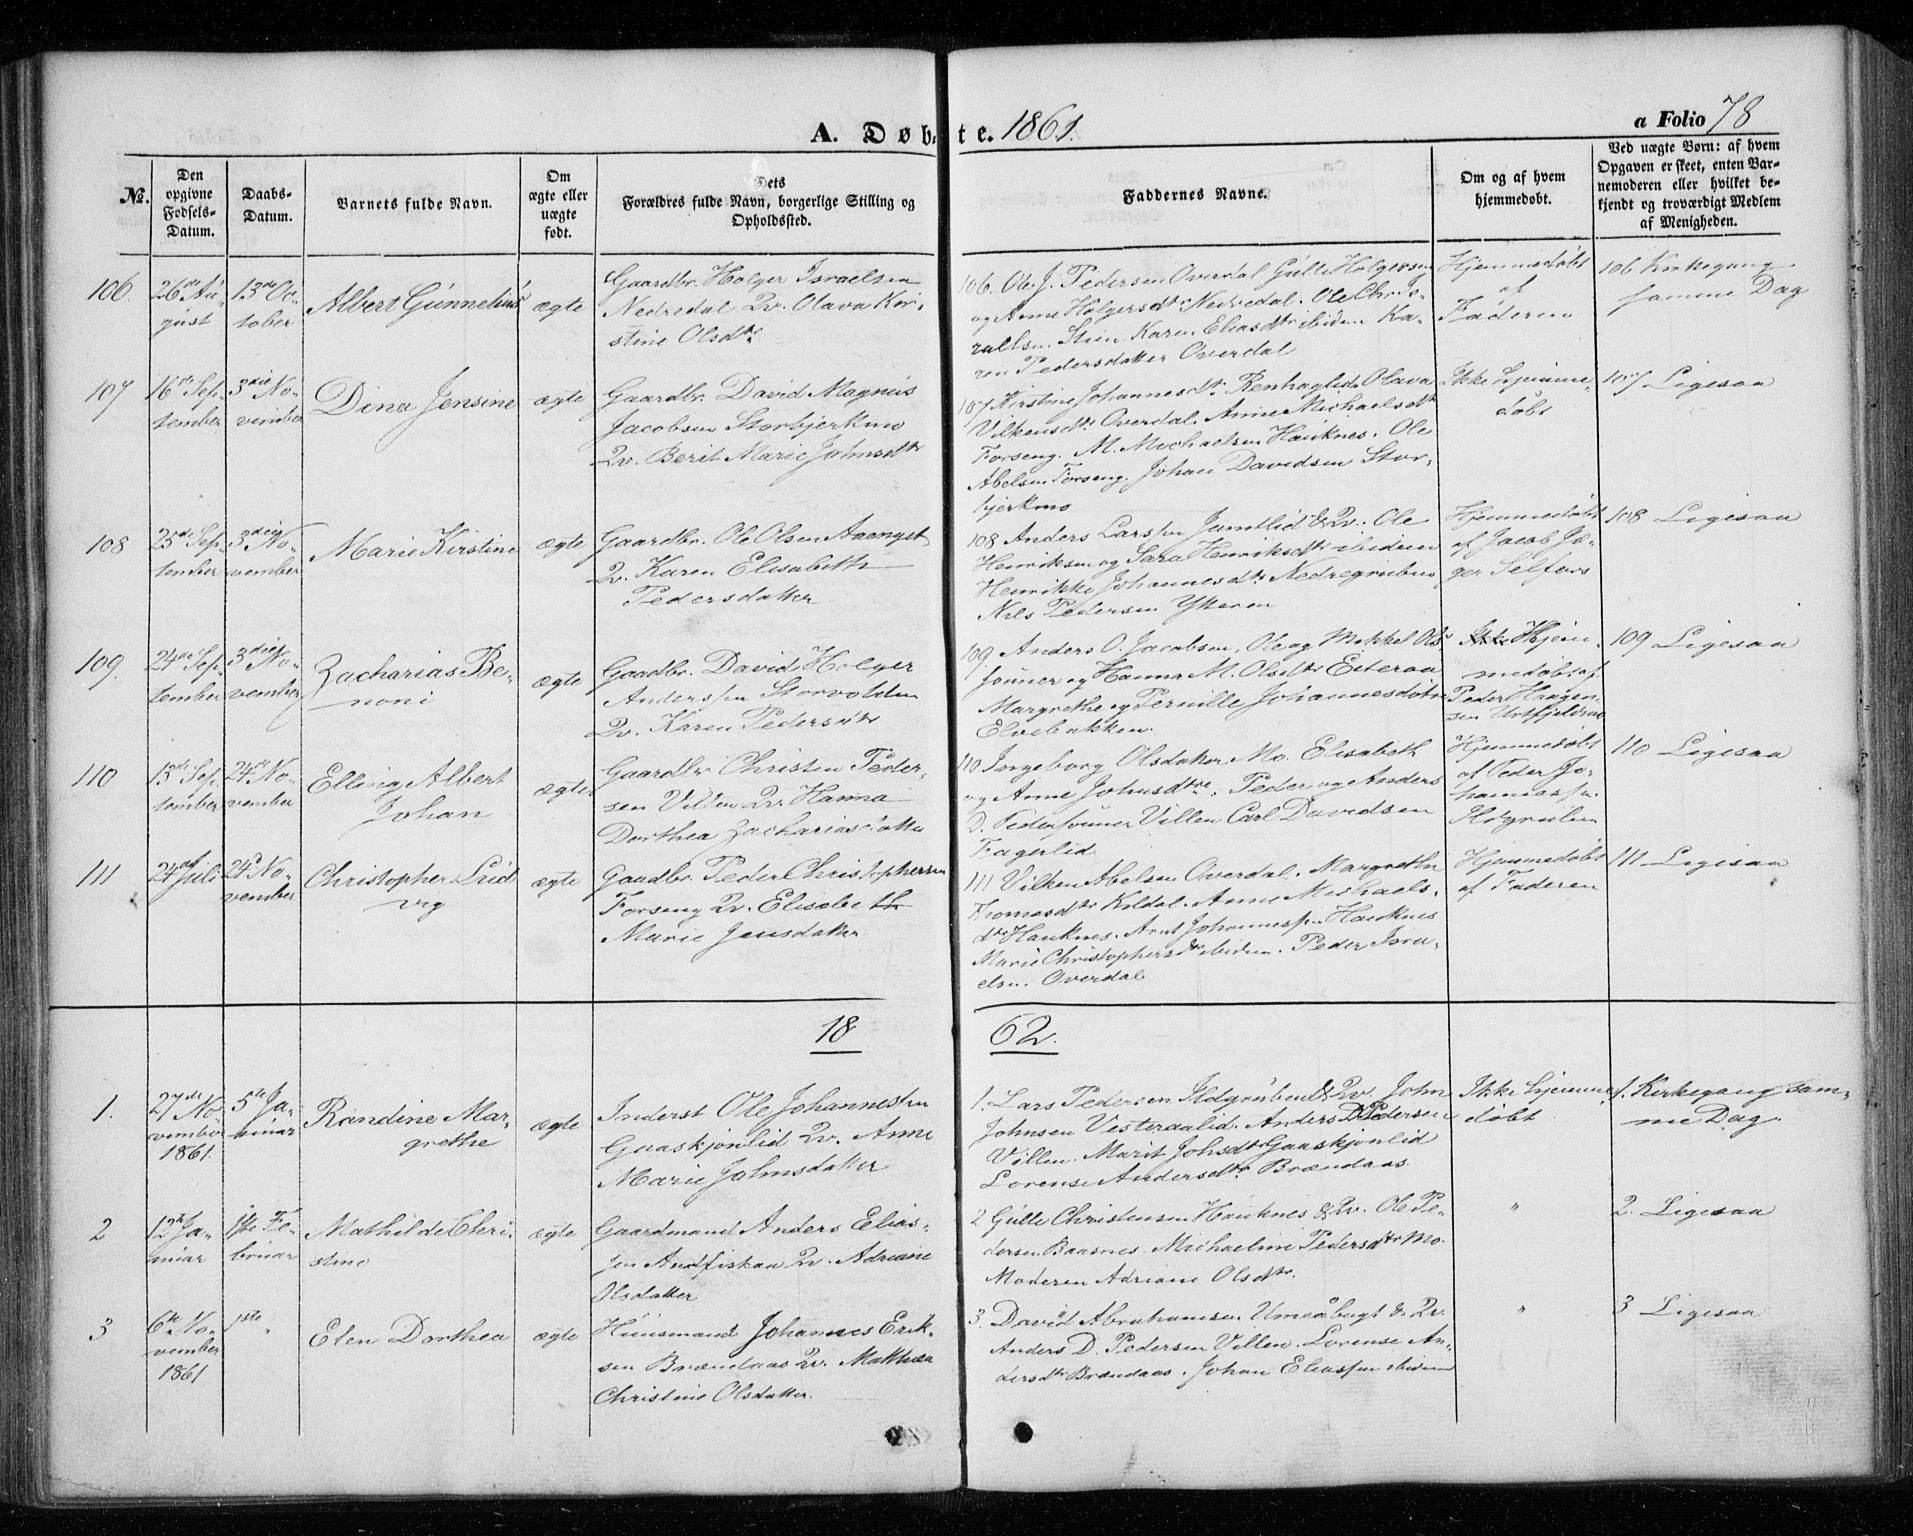 A. Døbte. 1861.
a Folio 78
No. | Den opgivne Fødsels-Datum. | Daabs-Datum. | Barnets fulde Navn. | Om ægte eller uægte født. | Dets Forældres fulde Navn, borgerlige Stilling og Opholdssted. | Faddernes Navne. | Om og af hvem hjemmedøbt. | Ved uægte Børn: af hvem Opgaven er skeet, enten Barnemoderen eller hvilket bekjendt og troværdigt Medlem af Menigheden.
106.
26de Au-
gust
13de Oc-
tober
Albert Günnelius
ægte
Gaardbr. Holger Israelsen
Nedredal Qv. Olava Kir-
stine Olsdtr
106. Ole J. Pedersen Overdal Gulle Holgersen
og Anne Holgersdtr Nedredal. Ole Chris-
Stien Karen Eliasdtr ibiden Ka-
ren Pedersdatter Overdal
Hjemmedøbt
af
Faderen
106 Kirkegang
samme Dag
107
16de Sep-
tember
3die No-
vember
Dina Jensine
ægte
Gaardbr. David Magnus
Jacobsen Storbjerkmo
Qv. Berit Marie Johnsdtr
107 Kirstine Johannesdtr Renhaglid. Olava
Vilkensdtr Overdal. Anne Michaelsdtr
Forseng. M. Michaelsen Hauknes. Ole
Abelsen Forseng. Johan Davidsen Stor-
bjerkmo
Ikke hjemme-
døbt
107 Ligesaa
108
23de Sep-
tember
3die No-
vember
Marie Kirstine
ægte
Gaardbr. Ole Olsen Aaenget
Qv. Karen Elisabeth
Pedersdatter
108 Anders Larssen Jamtlid & Qv. Ole
Henriksen og Sara Henriksdtr ibiden
Henrikke Johannesdtr Nedregruben
Nils Pedersen Ytteren
Hjemmedøbt
af Jacob Jæ-
ger Selfors
108 Ligesaa
109.
24de Sep-
tember
3die No-
vember
Zacharias Be-
noni
ægte
Gaadbr. David Holger
Anderssen Storvolden
Qv. Karen Pedersdtr
109 Anders O. Jacobsen, Ole og Mikkel Ols-
sønner og Hanna M. Olsdtr Eiteraa
Margrethe og Pernille Johannesdøtre
Elvebakken.
Ikke Hjem-
medøbt af
Peder Haagen-
sen Urtfjeldmo
109 Ligesaa
110
13de Sep-
tember
24de No-
vember
Elling Albert
Johan
ægte
Gaardbr. Christen Peder-
sen Villen Qv. Hanna
Dorthea Zachariasdatter
110 Ingeborg Olsdatter Mo. Elisabeth
og Anne Johnsdtre. Peder og Anders
D. Pedersønner Villen Carl Davidsen
Fagerlid
Hjemmedøbt
af Peder Jo-
hannessen
Ildgruben
110 Ligesaa
111
24de Juli
24de No-
vember
Christopher Lud-
vig
ægte
Gaadbr. Peder Christophersen
Forseng Qv. Elisabeth
Marie Jensdatter
111 Vilken Abelsen Overdal. Margrethe
Thomasdtr Kildal. Anne Michaels-
dtr Hauknes. Arnt Johannessen Hauknes
Marie Christophersdtr ibiden. Peder Isra-
elsen. Overdal
Hjemmedøbt
af Faderen
111 Ligesaa
18 62.
1.
27de No-
vember
1861.
5te Ja-
nuar
Randine Mar-
grethe
ægte
Inderst Ole Johannessen
Gaaskjønlid Qv. Anne
Marie Johnsdatter
1. Lars Pedersen Ildgruben & Qv. John
Johnsen Vesteraalid. Anders D Pedersen
Villen. Marit Johsdtr Gaaskjønlid
Lorense Andersdtr Brændaas.
Ikke hjemme-
døbt
1. Kirkegang sam-
me Dag.
2
12te Ja-
nuar
1ste Fe-
bruar
Mathilde Chri-
stine
ægte
Gaardmand Anders Elias-
sen Andfiskaa Qv. Adriane
Olsdatter
2 Gulle Christensen Hauknes & Qv. Ole Pe-
dersen Baasnes. Michaeline Pedersdtr Mo.
Moderen Adriane Olsdtr.
"
2. Ligesaa
3
6te No-
vember
1861
1ste "
Elen Dorthea
ægte
Huusmand Johannes Erik-
sen Brændaas Qv. Mathea
Christine Olsdatter.
3. David Abrahamsen Umeåbugt & Qv.
Anders D. Pedersen Villen. Lorense An-
dersdtr Brændaas. Johan Eliassen ibiden
"
3 Ligesaa